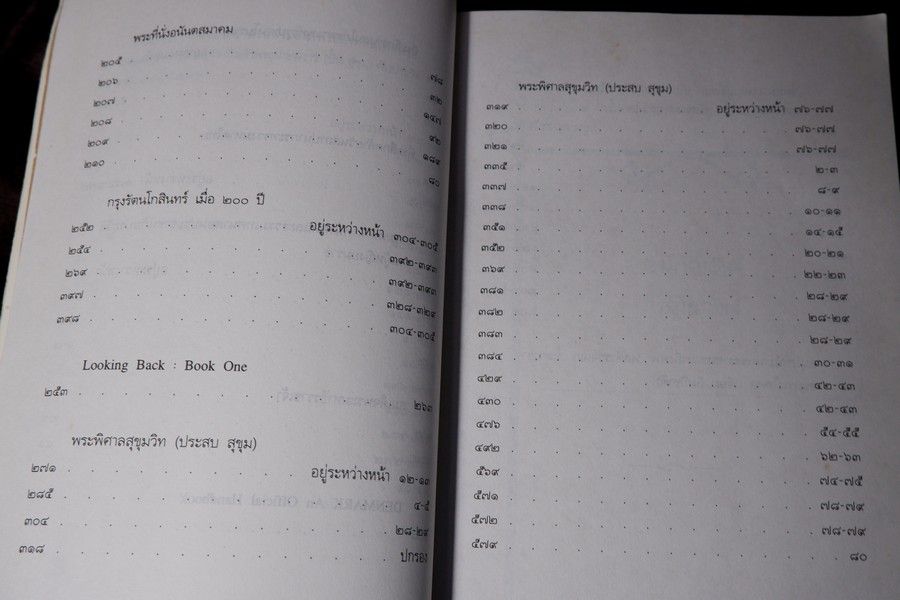 พระที่นั่งอนันตสมาคม
๒๐๕ ๗๘
๒๐๖ ๓๒
๒๐๗ ๑๔๗
๒๐๘ ๙๒
๒๐๙ ๑๘๙
๒๑๐ ๘๐
กรุงรัตนโกสินทร์ เมื่อ ๒๐๐ ปี
๒๕๒ อยู่ระหว่างหน้า ๓๐๔-๓๐๕
๒๕๔ ๓๙๒-๓๙๓
๒๖๙ ๓๙๒-๓๙๓
๓๙๗ ๓๒๘-๓๒๙
๓๙๘ ๓๐๔-๓๐๕
Looking Back : Book One
๒๕๓ ๒๖๓
พระพิศาลสุขุมวิท (ประสบ สุขุม)
๒๗๑ อยู่ระหว่างหน้า ๑๒-๑๓
๒๘๕ ๔-๕
๓๐๔ ๒๘-๒๙
๓๑๘ ปกรอง
พระพิศาลสุขุมวิท (ประสบ สุขุม)
๓๑๙ อยู่ระหว่างหน้า ๗๖-๗๗
๓๒๐ ๗๖-๗๗
๓๒๑ ๗๖-๗๗
๓๓๕ ๒-๓
๓๓๗ ๘-๙
๓๓๘ ๑๐-๑๑
๓๕๑ ๑๔-๑๕
๓๕๒ ๒๐-๒๑
๓๖๙ ๒๒-๒๓
๓๘๑ ๒๘-๒๙
๓๘๒ ๒๘-๒๙
๓๘๓ ๒๘-๒๙
๓๘๔ ๓๐-๓๑
๔๒๙ ๔๒-๔๓
๔๓๐ ๔๒-๔๓
๔๗๖ ๕๔-๕๕
๔๙๒ ๖๒-๖๓
๕๖๙ ๗๔-๗๕
๕๗๑ ๗๘-๗๙
๕๗๒ ๗๘-๗๙
๕๗๙ ๘๐